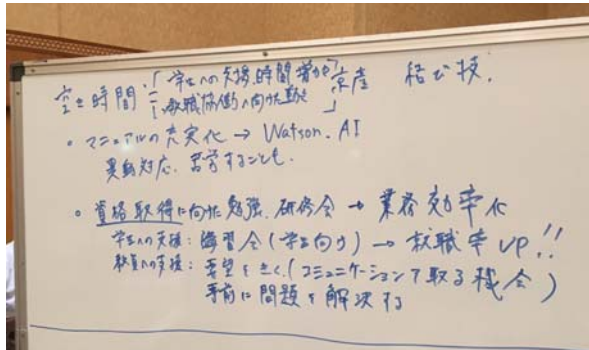 空き時間:「学生への支援時間増加 京産 結び技.
教職協働へ向けた動き」
。マニュアルの充実化 → Watson. AI
異動対応. 苦労することも.
。資格取得に向けた勉強. 研修会 → 業務効率化
学生への支援: 講習会(学生向け) → 就職率UP!!
教員への支援: 要望をきく.(コミュニケーションで取る機会)
事前に問題を解決する